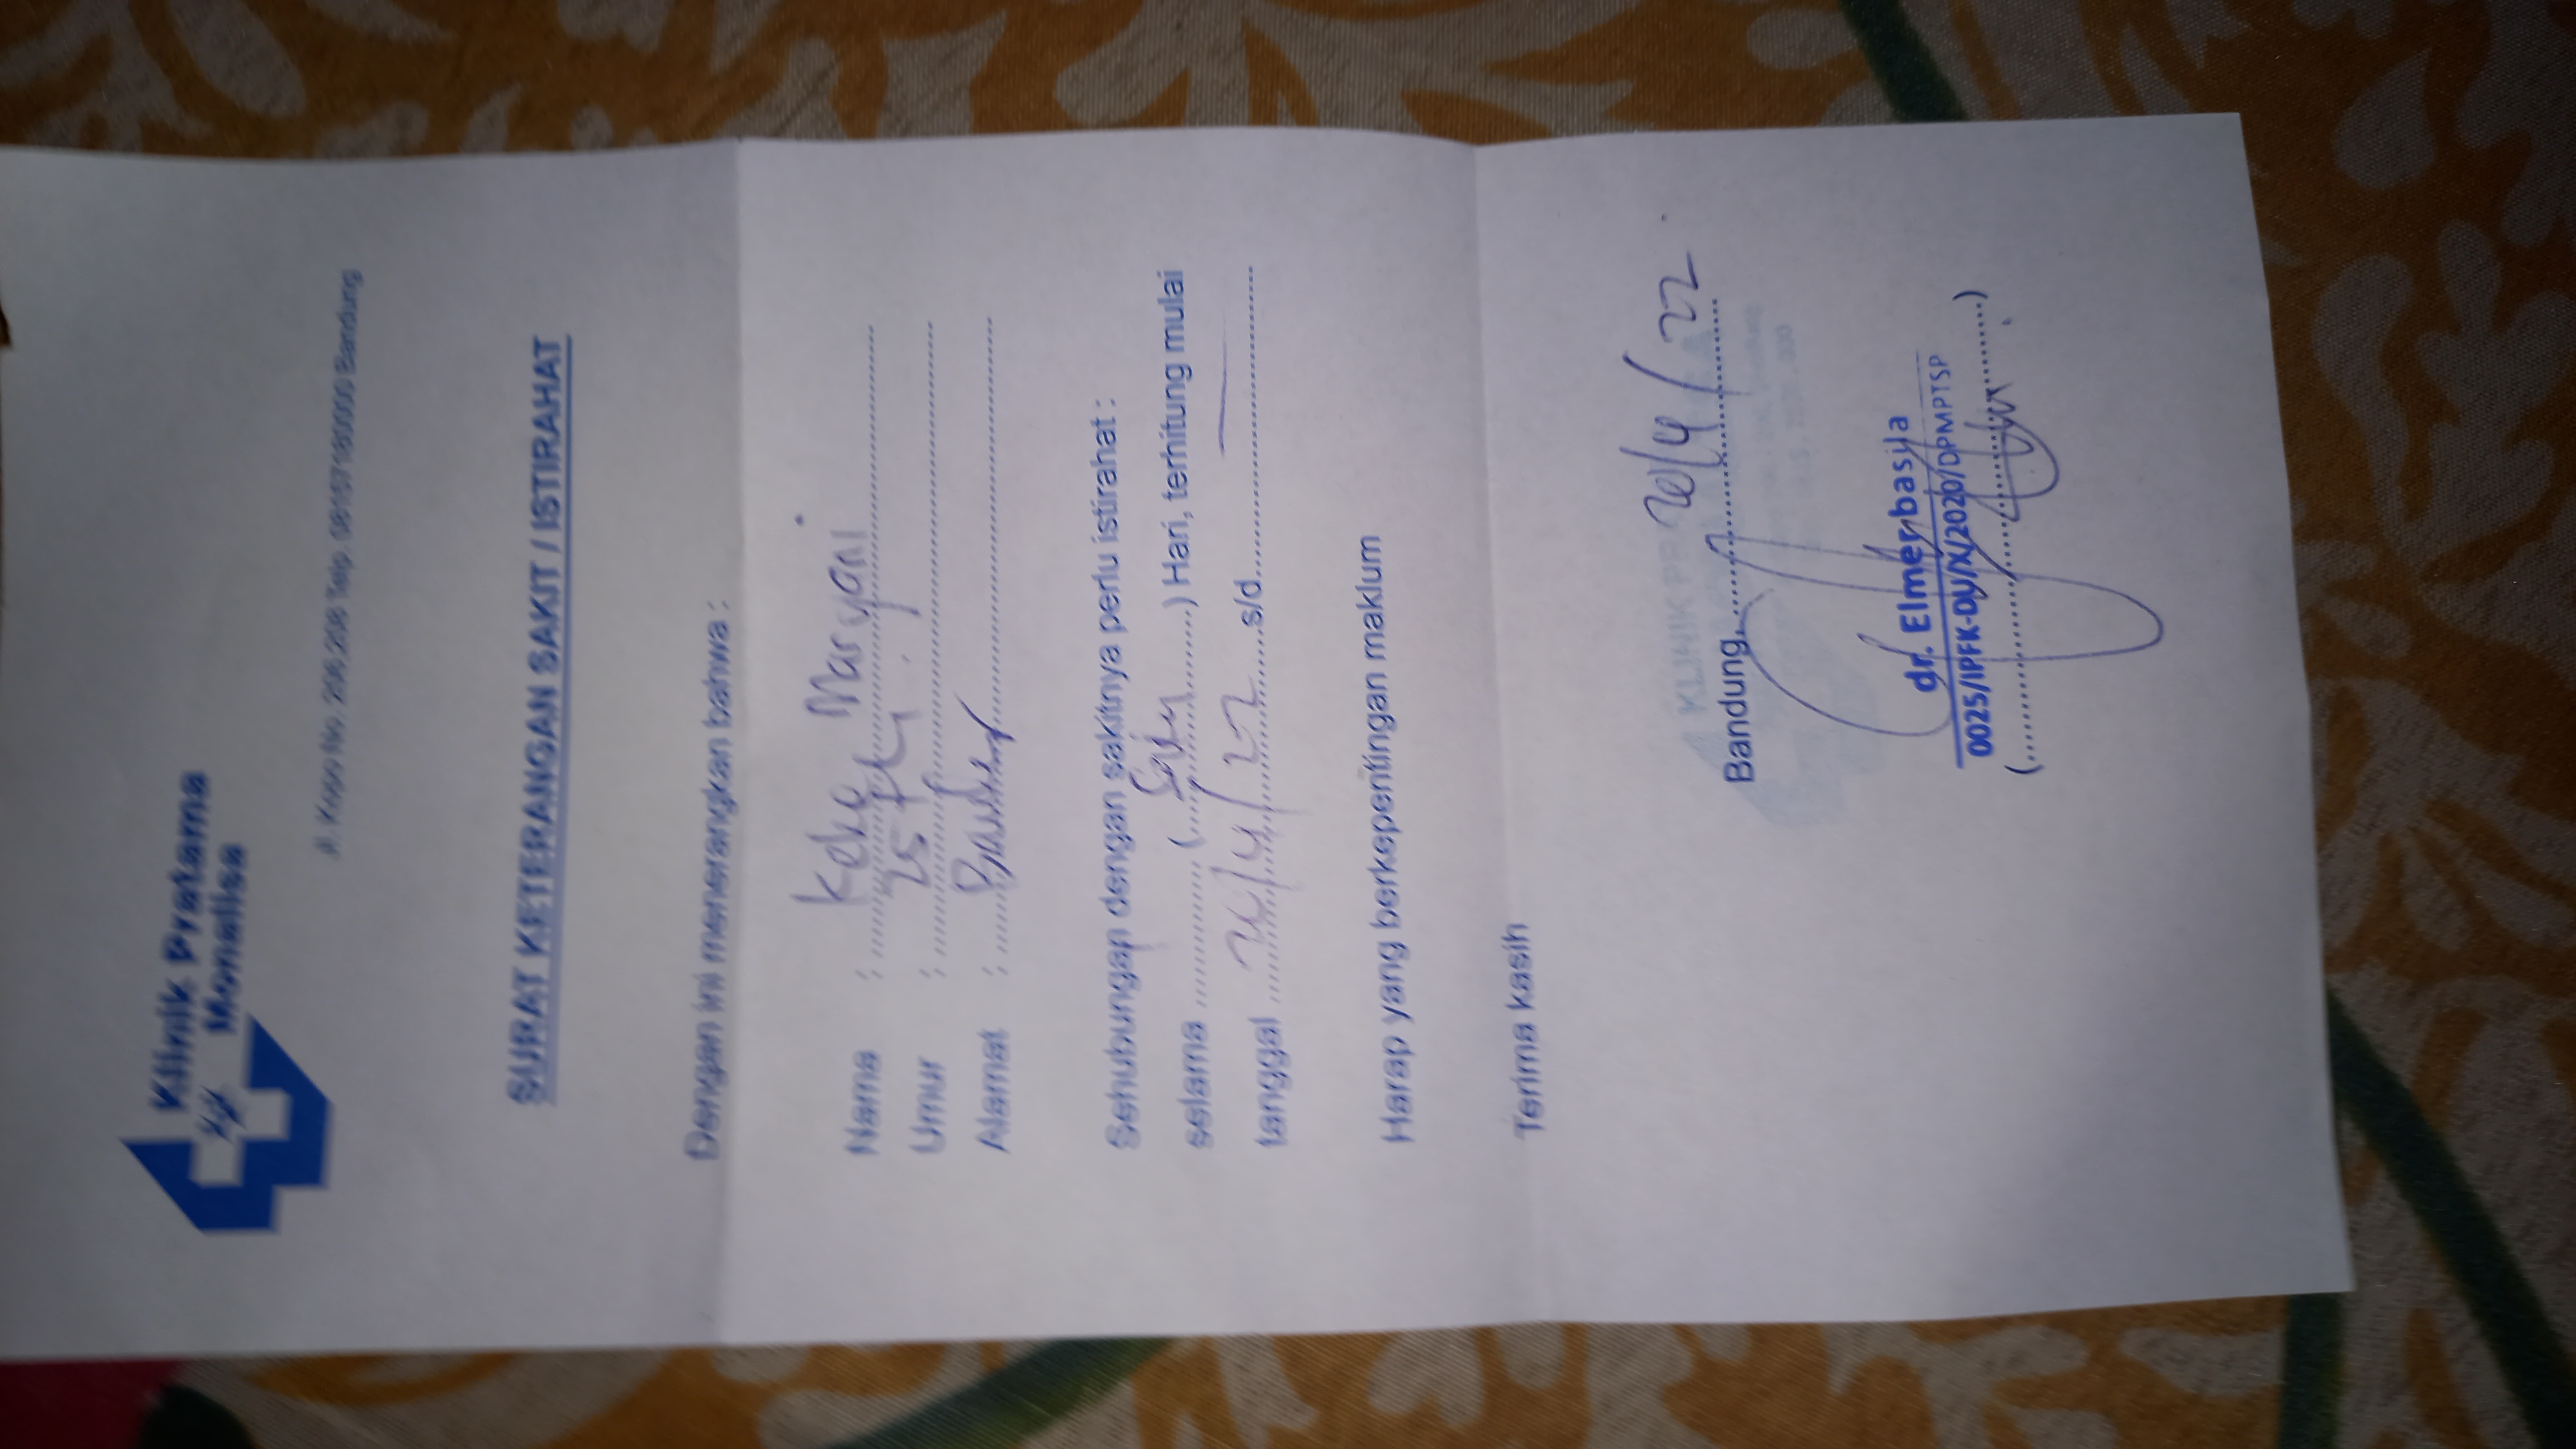 Klinik Pratama
Monalisa
Jl. Kopo No. 206,208 Telp. 08157180000 Bandung
SURAT KETERANGAN SAKIT / ISTIRAHAT
Dengan ini menerangkan bahwa :
Nama : Keko Maryani
Umur : 25 th
Alamat :
Sehubungan dengan sakitnya perlu istirahat :
selama (Satu) Hari, terhitung mulai
tanggal /4/22 s/d
Harap yang berkepentingan maklum
Terima kasih
KLINIK
Bandung, /4/22
dr. Elmer basila
0025/IPFK-DU/X/2020/DPMPTSP